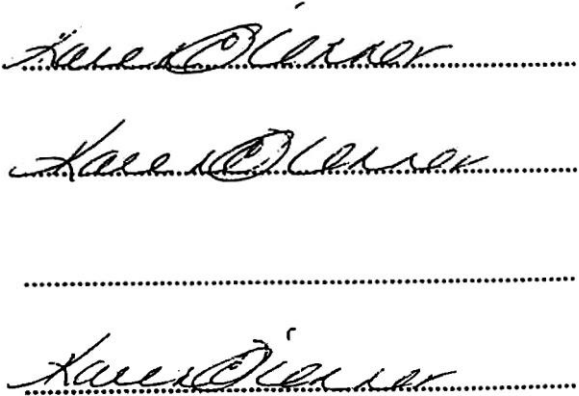 Karen O'Connor
Karen O'Connor
Karen O'Connor